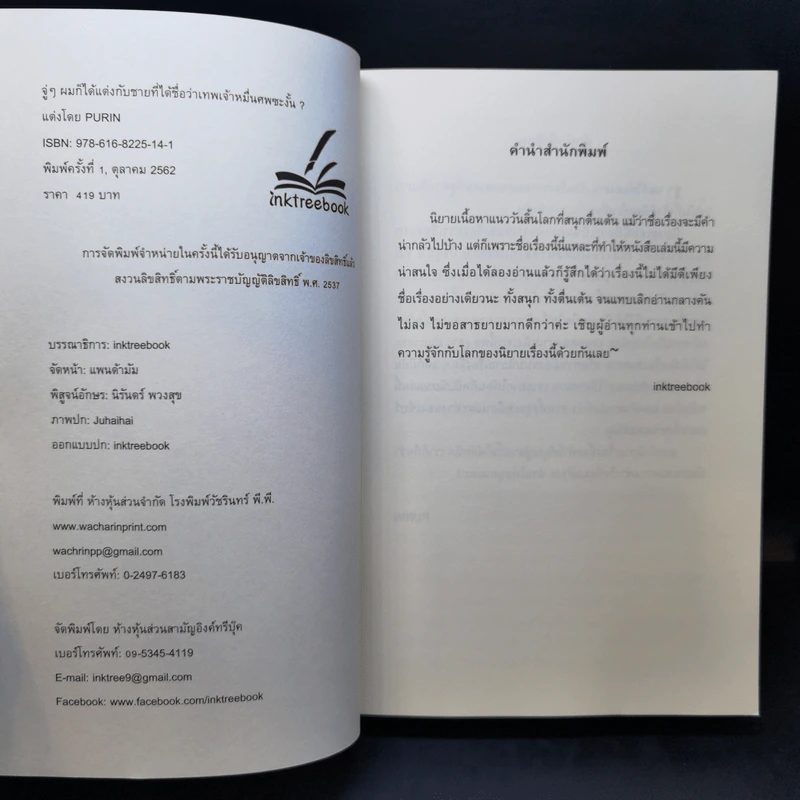 จู่ๆ ผมก็ได้แต่งกับชายที่ได้ชื่อว่าเทพเจ้าหมื่นศพซะงั้น ?
แต่งโดย PURIN
ISBN: 978-616-8225-14-1
พิมพ์ครั้งที่ 1, ตุลาคม 2562
ราคา 419 บาท
inktreebook
การจัดพิมพ์จำหน่ายในครั้งนี้ได้รับอนุญาตจากเจ้าของลิขสิทธิ์แล้ว
สงวนลิขสิทธิ์ตามพระราชบัญญัติลิขสิทธิ์ พ.ศ. 2537
บรรณาธิการ: inktreebook
จัดหน้า: แพนด้ามัม
พิสูจน์อักษร: นิรันดร์ พวงสุข
ภาพปก: Juhaihai
ออกแบบปก: inktreebook
พิมพ์ที่ ห้างหุ้นส่วนจำกัด โรงพิมพ์วัชรินทร์ พี.พี.
www.wacharinprint.com
wachrinpp@gmail.com
เบอร์โทรศัพท์: 0-2497-6183
จัดพิมพ์โดย ห้างหุ้นส่วนสามัญอิงค์ทรีบุ๊ค
เบอร์โทรศัพท์: 09-5345-4119
E-mail: inktree9@gmail.com
Facebook: www.facebook.com/inktreebook
คำนำสำนักพิมพ์
นิยายเนื้อหาแนววันสิ้นโลกที่สนุกตื่นเต้น แม้ว่าชื่อเรื่องจะมีคำ
น่ากลัวไปบ้าง แต่ก็เพราะชื่อเรื่องนี้นี่แหละที่ทำให้หนังสือเล่มนี้มีความ
น่าสนใจ ซึ่งเมื่อได้ลองอ่านแล้วก็รู้สึกได้ว่าเรื่องนี้ไม่ได้มีดีเพียง
ชื่อเรื่องอย่างเดียวนะ ทั้งสนุก ทั้งตื่นเต้น จนแทบเลิกอ่านกลางคัน
ไม่ลง ไม่ขอสาธยายมากดีกว่าค่ะ เชิญผู้อ่านทุกท่านเข้าไปทำ
ความรู้จักกับโลกของนิยายเรื่องนี้ด้วยกันเลย~
inktreebook